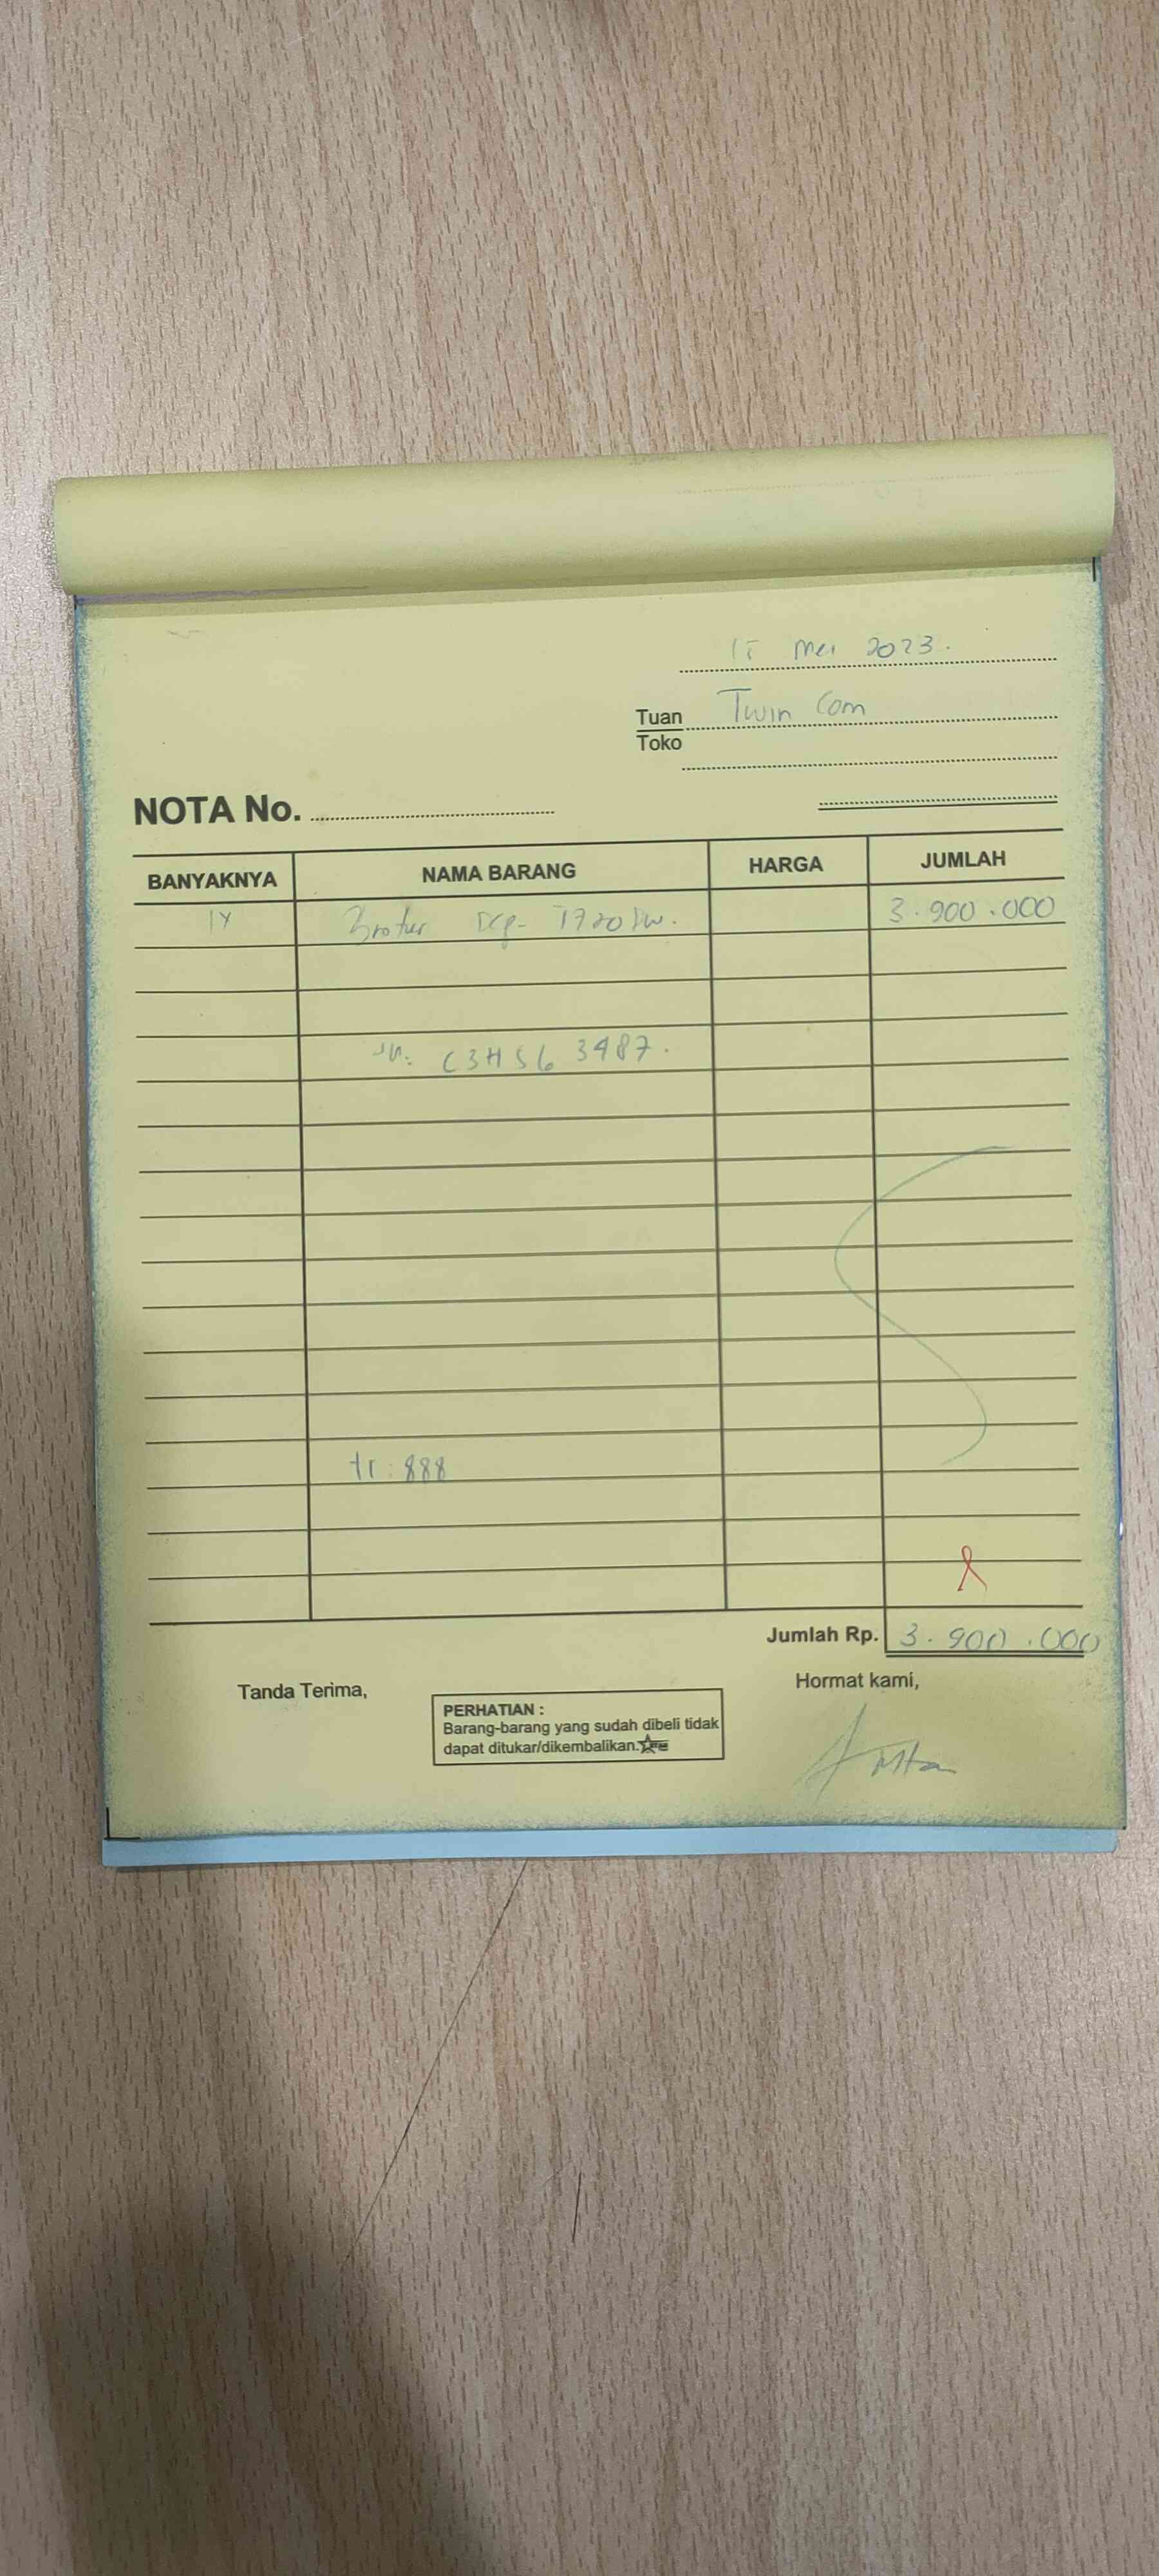 15 Mei 2023.
Tuan Twin Com
Toko
NOTA No.
BANYAKNYA NAMA BARANG HARGA JUMLAH
1x Brother Dcp- T720DW. 3.900.000
SN: C3H563487.
tr: 888
Jumlah Rp. 3.900.000
Tanda Terima, Hormat kami,
PERHATIAN :
Barang-barang yang sudah dibeli tidak
dapat ditukar/dikembalikan.